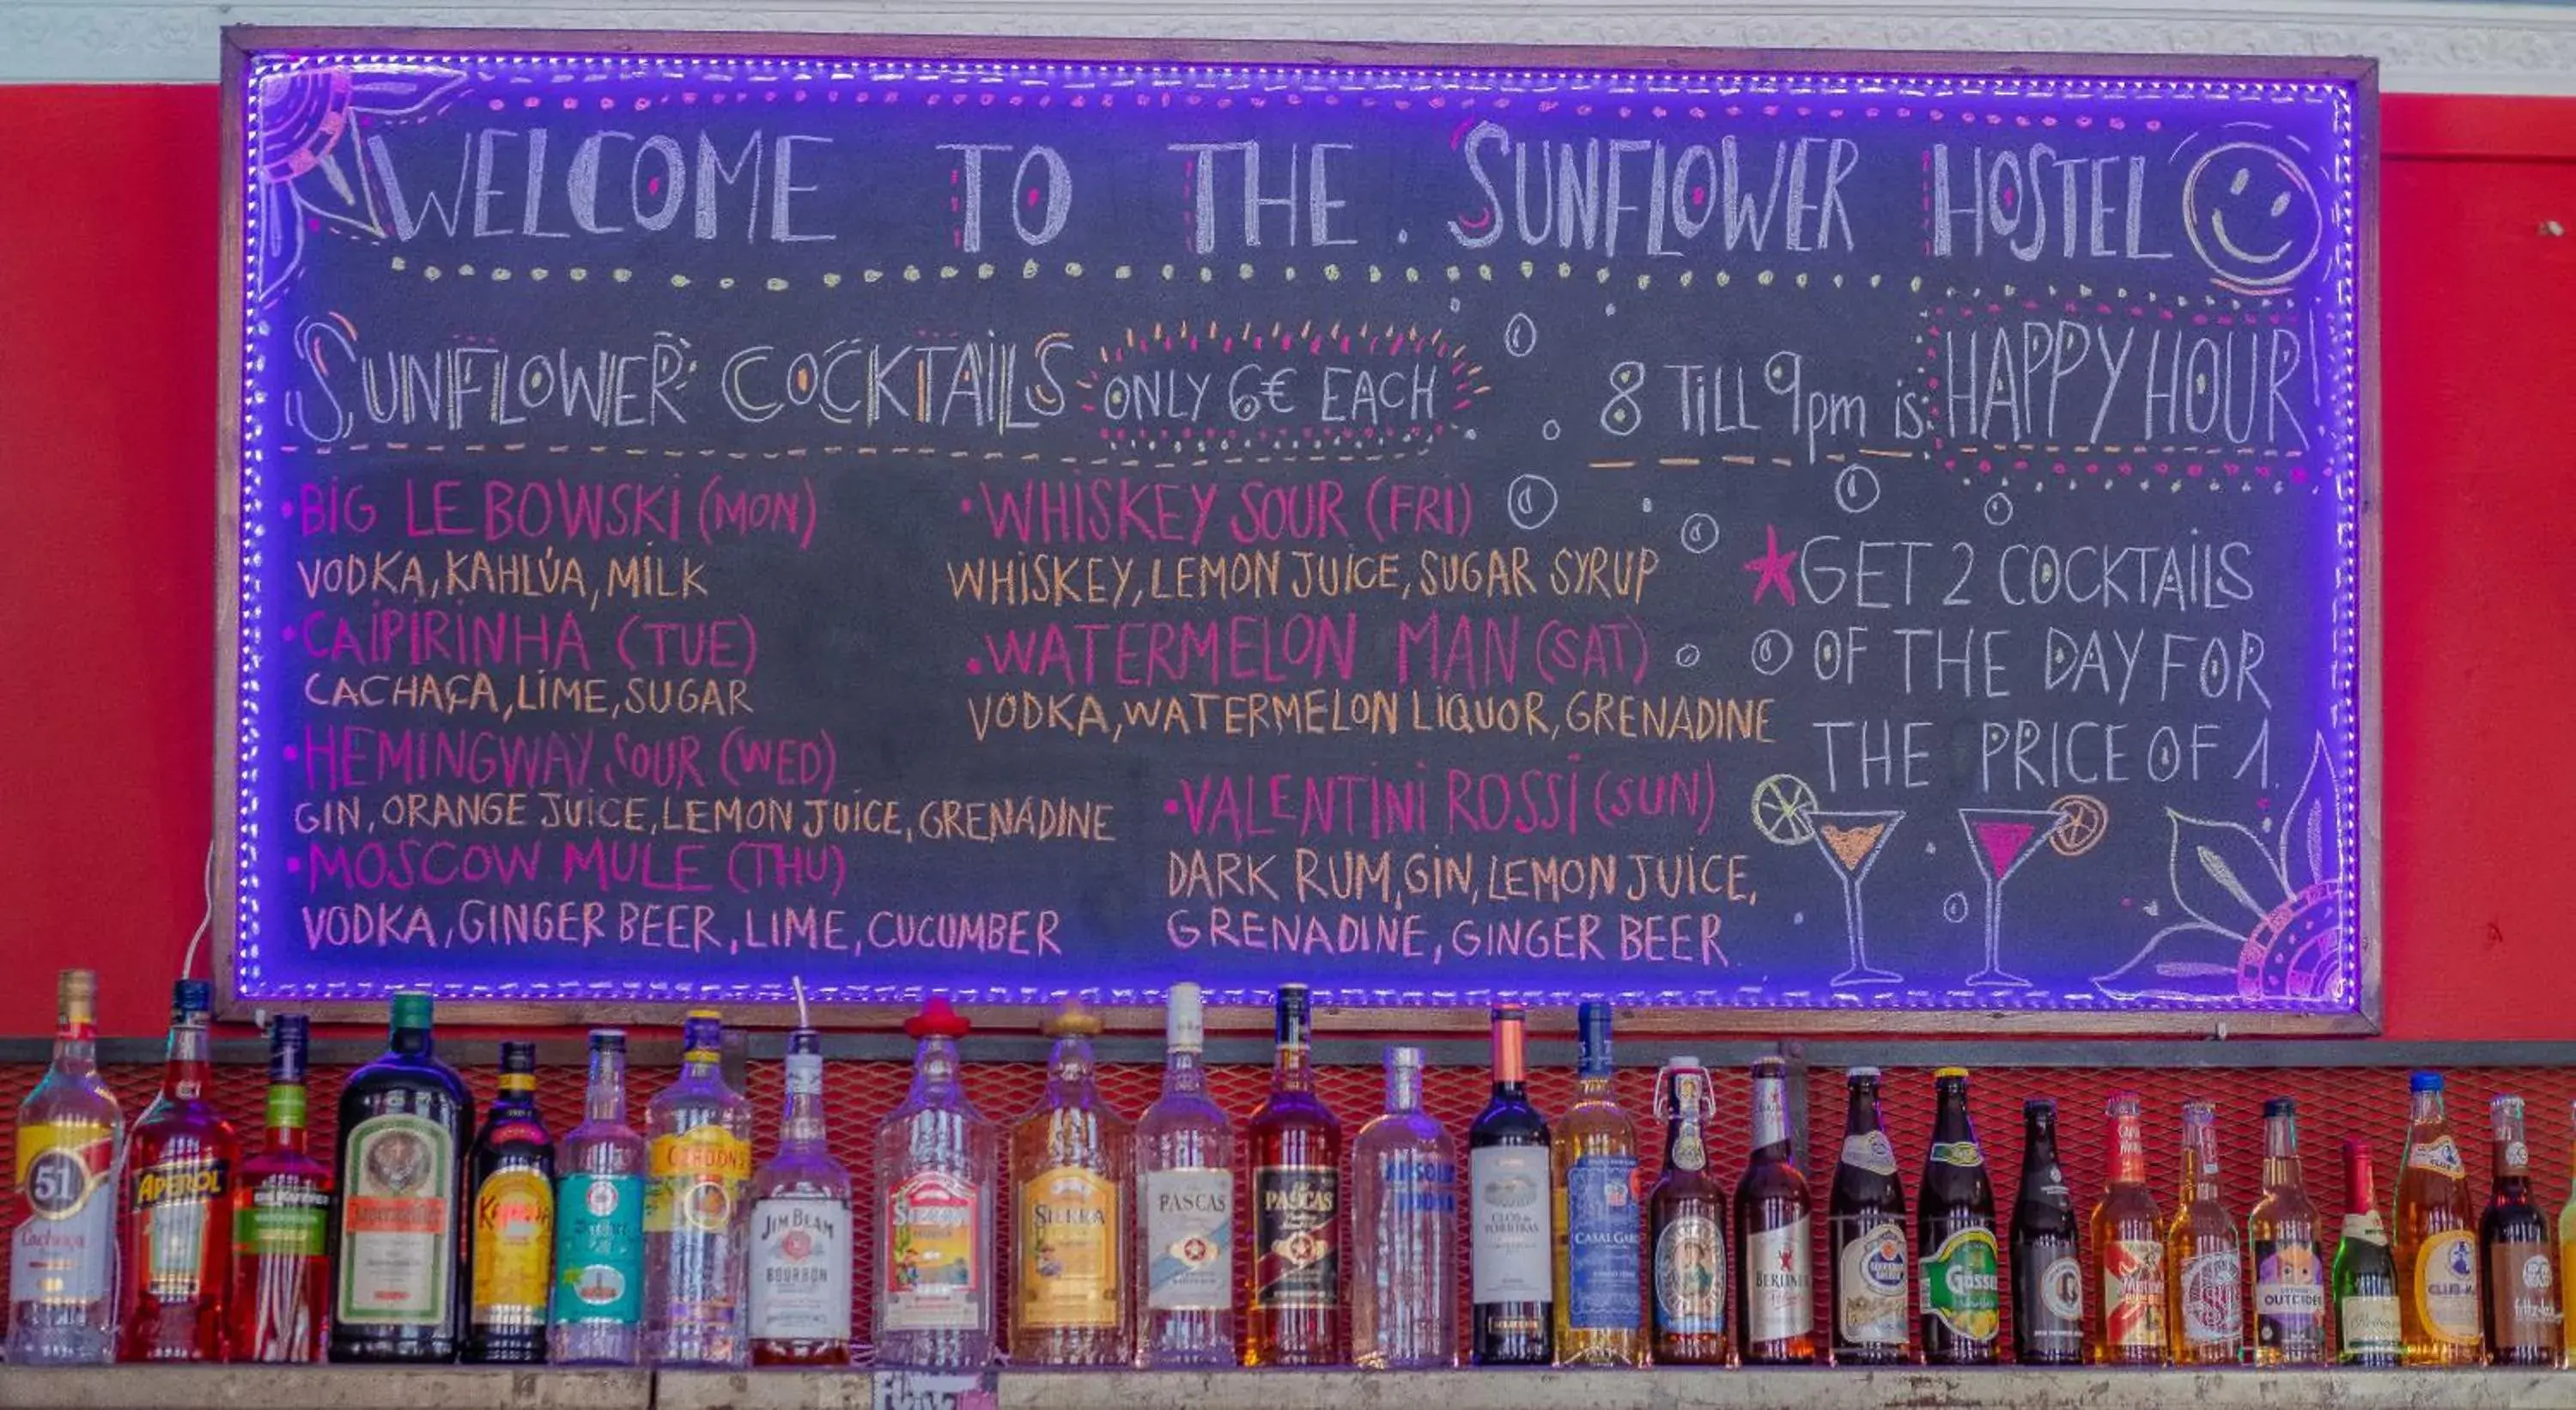 WELCOME TO THE. SUNFLOWER HOSTEL
SUNFLOWER COCKTAILS ONLY 6€ EACH
8 TILL 9pm is: HAPPY HOUR
•BIG LEBOWSKI (MON)
VODKA, KAHLÚA, MILK
•CAIPIRINHA (TUE)
CACHAÇA, LIME, SUGAR
•HEMINGWAY SOUR (WED)
GIN, ORANGE JUICE, LEMON JUICE, GRENADINE
•MOSCOW MULE (THU)
VODKA, GINGER BEER, LIME, CUCUMBER
•WHISKEY SOUR (FRI)
WHISKEY, LEMON JUICE, SUGAR SYRUP
•WATERMELON MAN (SAT)
VODKA, WATERMELON LIQUOR, GRENADINE
•VALENTINI ROSSI (SUN)
DARK RUM, GIN, LEMON JUICE,
GRENADINE, GINGER BEER.
GET 2 COCKTAILS
OF THE DAY FOR
THE PRICE OF 1.
51
Cachaça
APEROL
GORDON'S
JIM BEAM
BOURBON
SIERRA
PASCAS
PASCAS
ABSOLUT
VODKA
CLOS de
TORRIBAS
CASAL GARCIA
BERLINER
Gösser
OUTCIDER
CLUB-M
fritz-kola